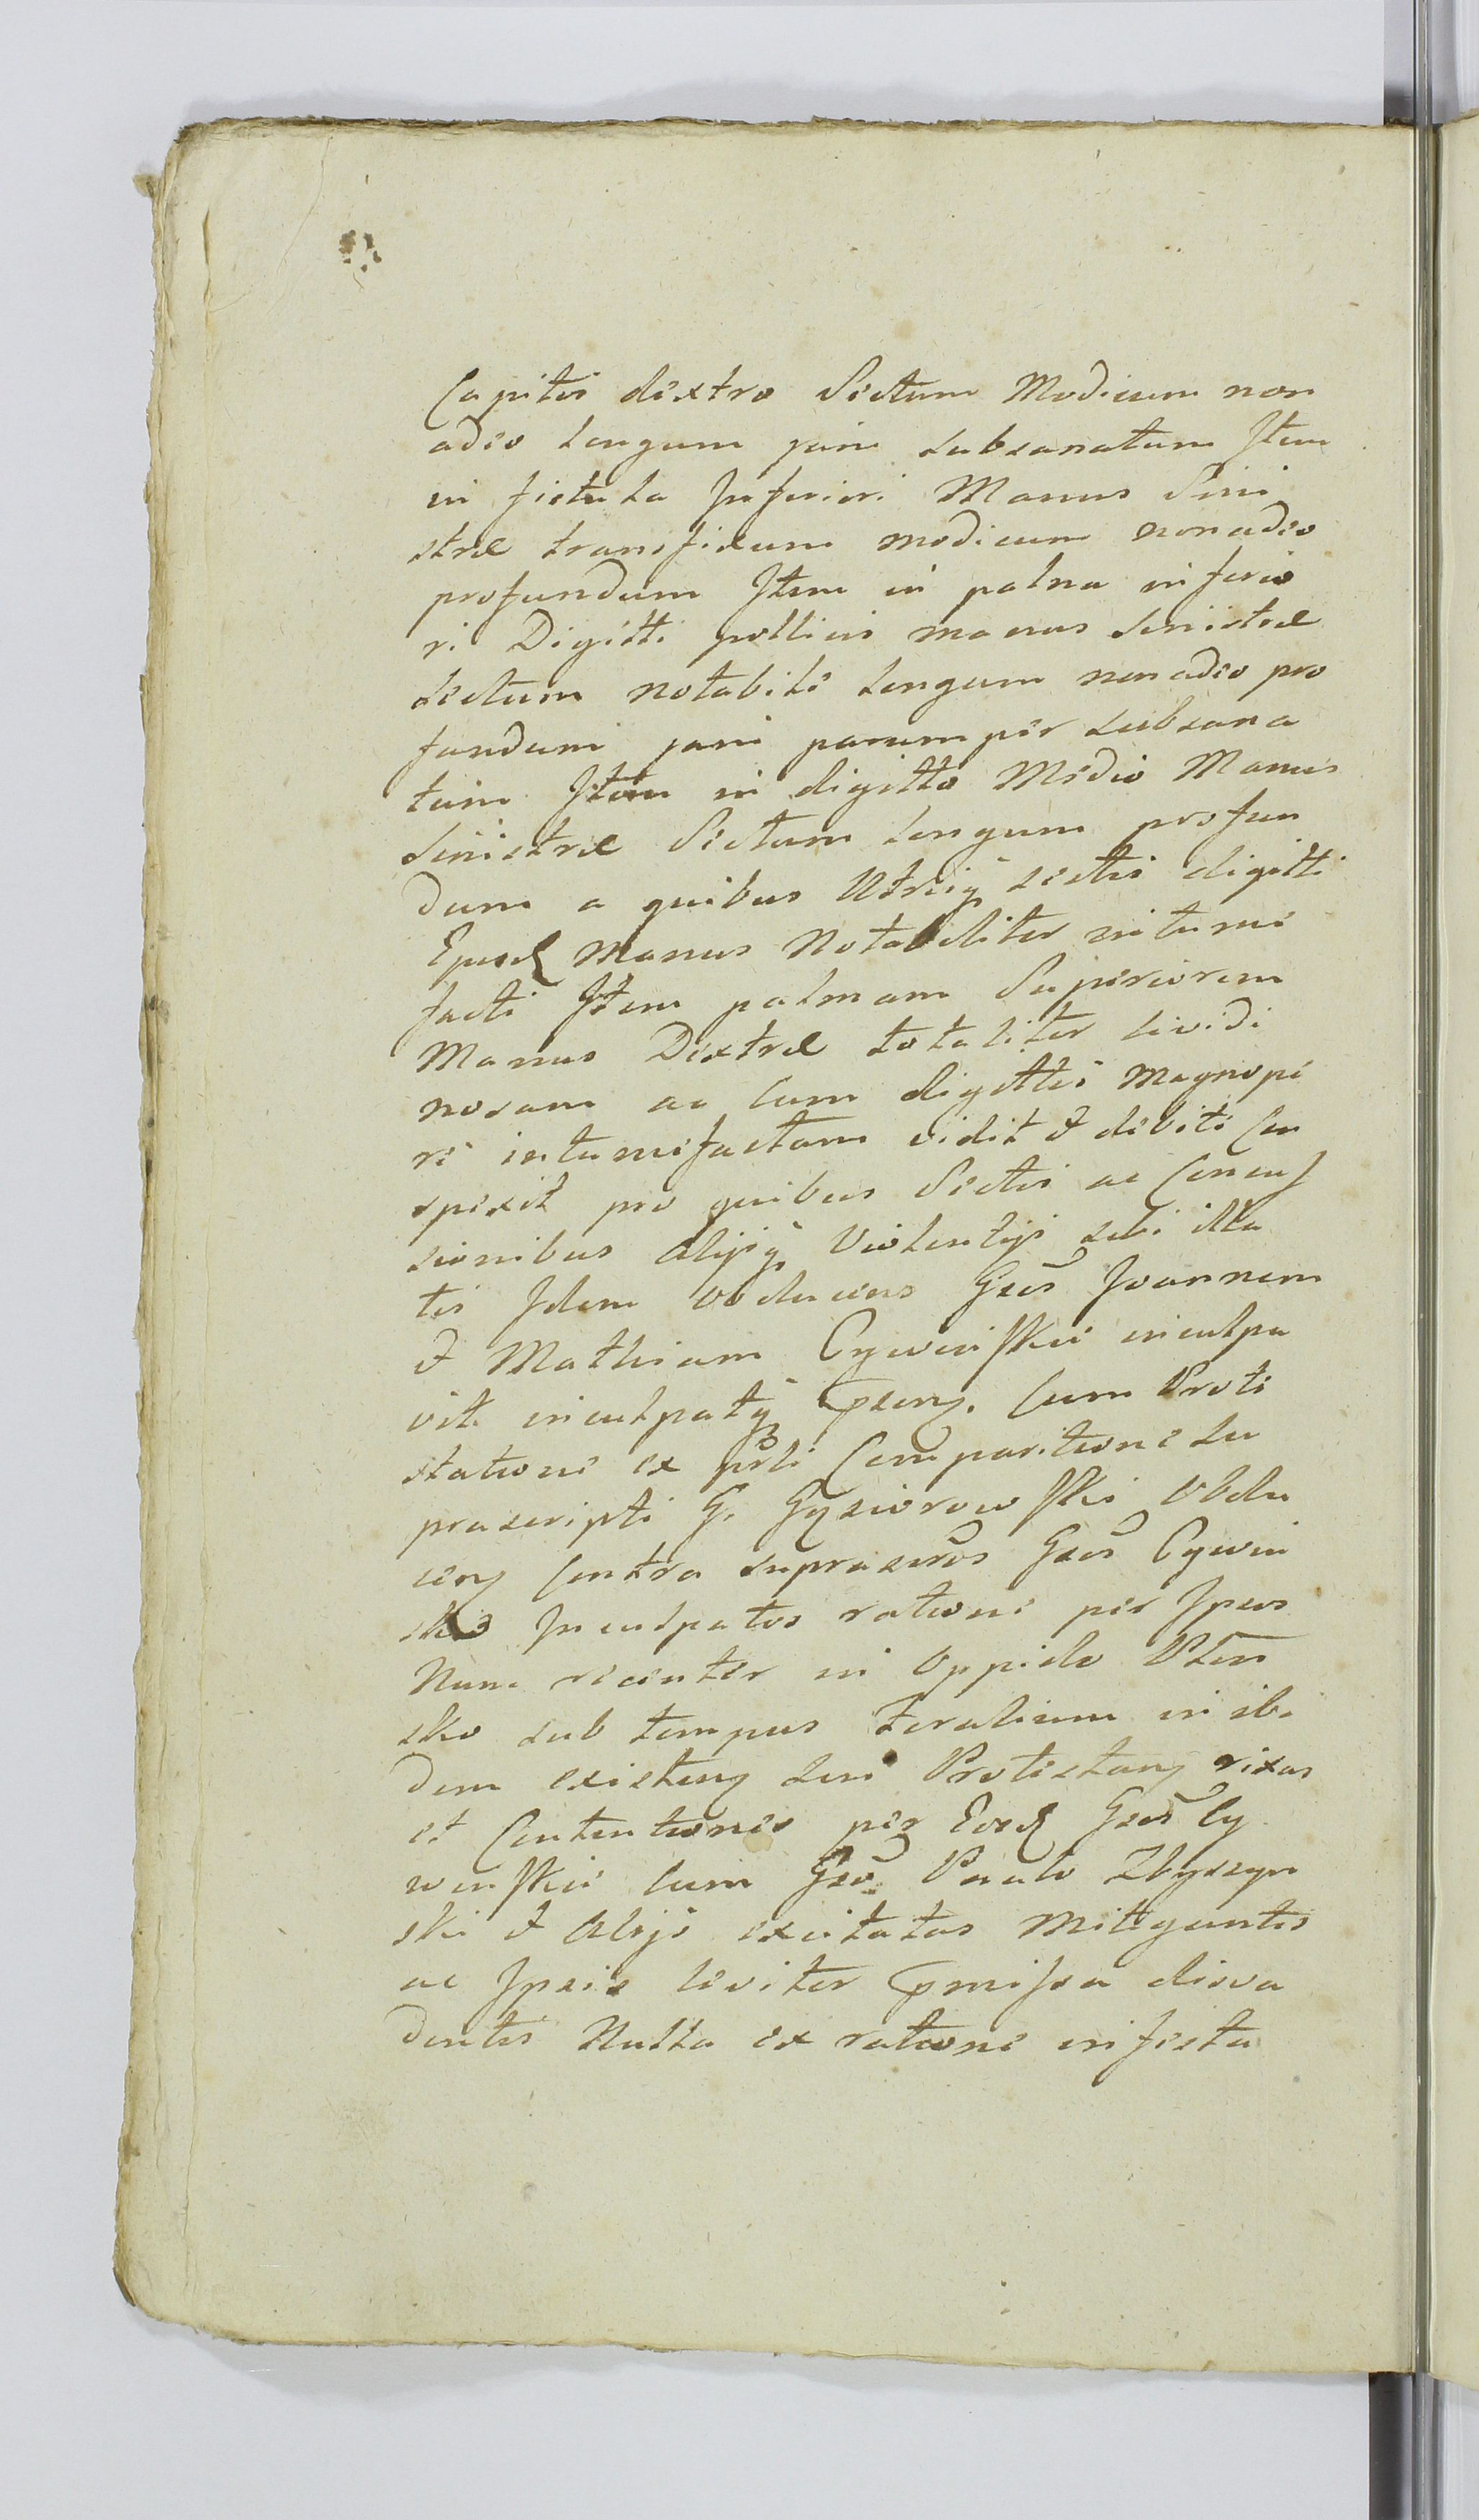 Capitis dextro Sectum Modicum non
adeo longum jam subsanatum Item
in fistula Inferiori Manus Sini
stræ transfixum modicum non adeo
profundum Item in palma inferio
ri Digitti pollicis manus sinistræ
sectum notabile longum non adeo pro
fundum jam parumper subsana
tum Item in digitto Medio Manus
Sinistræ Sectum longum profun
dum a quibus Utrisq sectis digitti
Ejusd Manus Notabiliter intume
facti Item palmam Superiorem
Manus Dextræ totaliter lividi
nosam ac cum digittis magnope
re intumefactam vidit et debite Con
spexit pro quibus Sectis ac Concus
sionibus Alijsq Violentijs sibi illa
tis Idem Obducens Gsos Joannem
et Mathiam Cywinskie inculpa
vit inculpatq psens. Cum Prote
statione ex psti Comparitione su
prascripti G. Gąsiorowski Obdu
cens Contra suprascros Gsos Cywin
skie Inculpatos ratione per Ipsos
Nunc recenter in Oppido
sko sub tempus Feralium in ibi
dem existens sui Protestans rixas
et Contentiones per Eosd Gsos Cy
winskie cum Gso Paulo Zbyszyn
ski et Alijs excitatas Mitigantis
ac Ipsis leviter pmissa disva
dentis Nulla ex ratione infesta